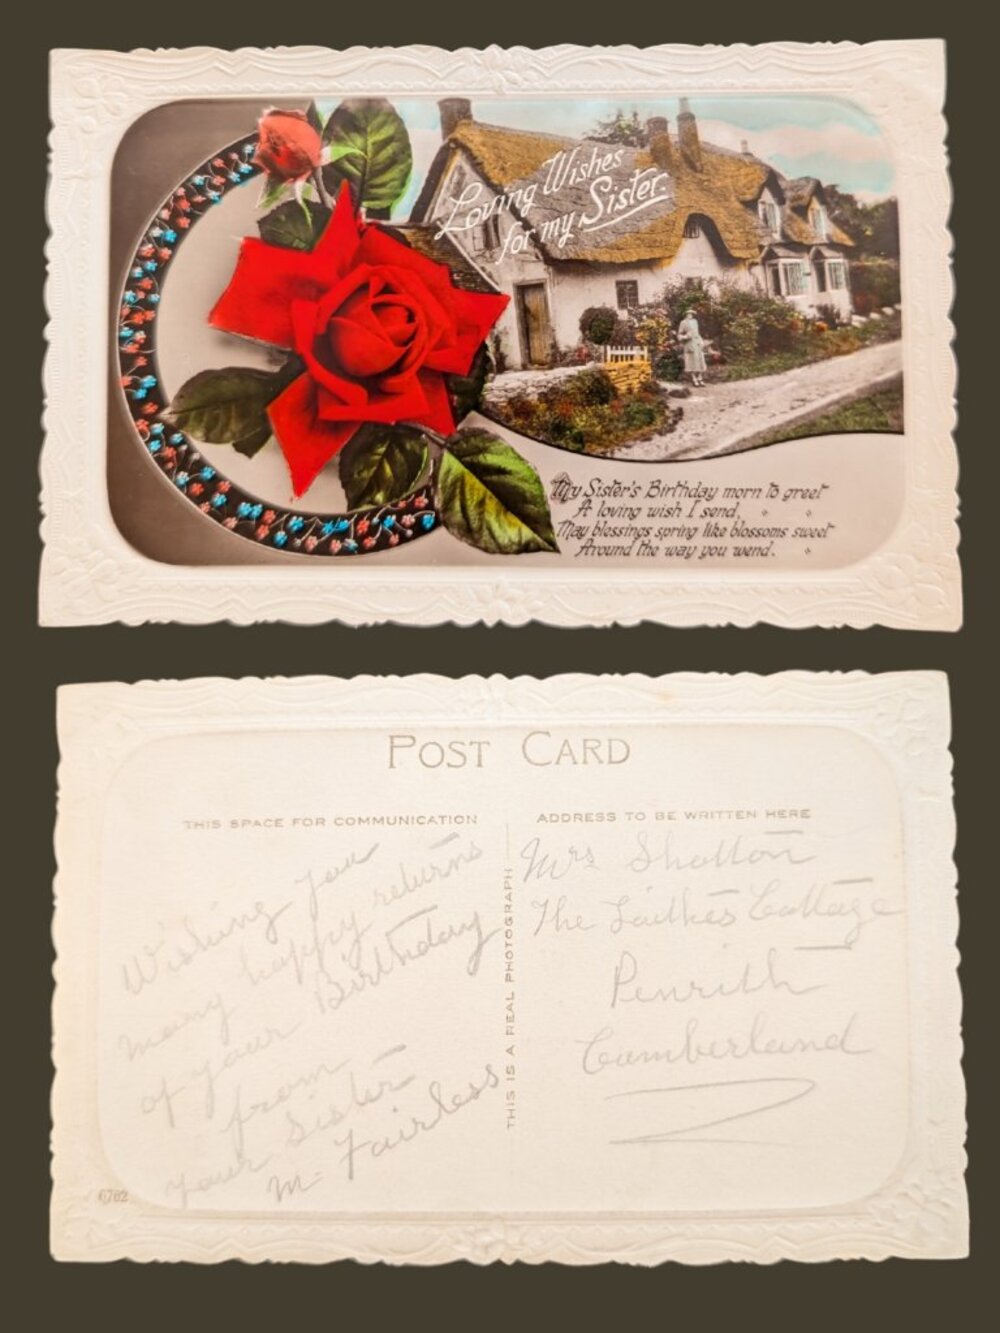 Loving Wishes
for my Sister.
My Sister's Birthday morn to greet
A loving wish I send,
May blessings spring like blossoms sweet
Around the way you wend.
POST CARD
THIS SPACE FOR COMMUNICATION
Wishing you
many happy returns
of your Birthday
from
your Sister
M. Fairless
THIS IS A REAL PHOTOGRAPH
ADDRESS TO BE WRITTEN HERE
Mrs Shotton
The Cottage
Penrith
Cumberland
6762